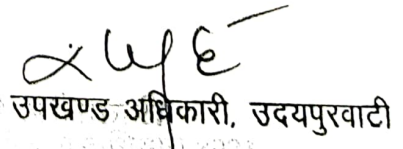 उपखण्ड अधिकारी, उदयपुरवाटी